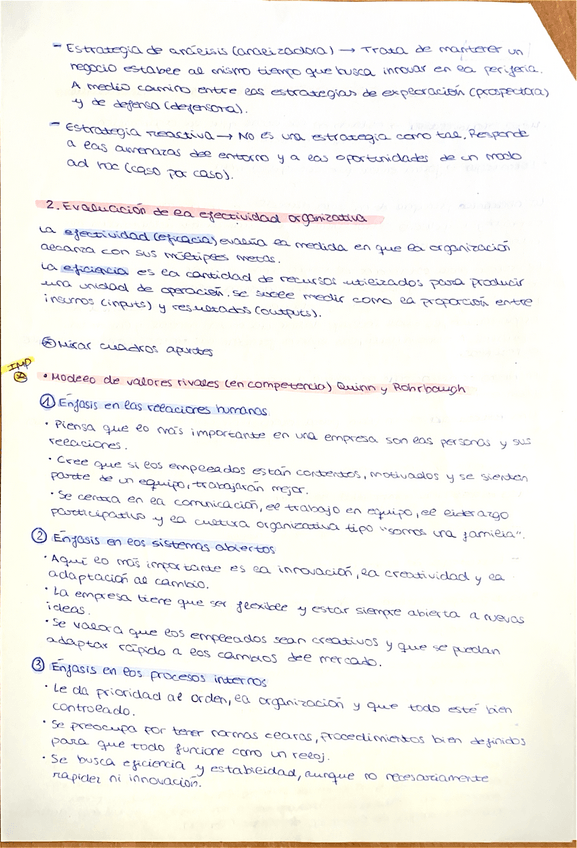 - Estrategia de análisis (analizadora) → Trata de mantener un
negocio estable al mismo tiempo que busca innovar en la periferia.
A medio camino entre las estrategias de exploración (prospectora)
y de defensa (defensora).
- Estrategia Reactiva → No es una estrategia como tal. Responde
a las amenazas del entorno y a las oportunidades de un modo
ad hoc (caso por caso).
2. Evaluación de la efectividad organizativa
La efectividad (eficacia) evalúa la medida en que la organización
alcanza con sus múltiples metas.
La eficiencia es la cantidad de recursos utilizados para producir
una unidad de operación, se suele medir como la proporción entre
insumos (inputs) y resultados (outputs).
* Mirar cuadros apuntes
IMP
* • Modelo de valores rivales (en competencia) Quinn y Rohrbaugh
① Énfasis en las relaciones humanas
• Piensa que lo más importante en una empresa son las personas y sus
relaciones.
• Cree que si los empleados están contentos, motivados y se sienten
parte de un equipo, trabajarán mejor.
• Se centra en la comunicación, el trabajo en equipo, el liderazgo
participativo y la cultura organizativa tipo "somos una familia".
② Énfasis en los sistemas abiertos
• Aquí lo más importante es la innovación, la creatividad y la
adaptación al cambio.
• La empresa tiene que ser flexible y estar siempre abierta a nuevas
ideas.
• Se valora que los empleados sean creativos y que se puedan
adaptar rápido a los cambios del mercado.
③ Énfasis en los procesos internos
• Le da prioridad al orden, la organización y que todo esté bien
controlado.
• Se preocupa por tener normas claras, procedimientos bien definidos
para que todo funcione como un reloj.
• Se busca eficiencia y estabilidad, aunque no necesariamente
rapidez ni innovación.